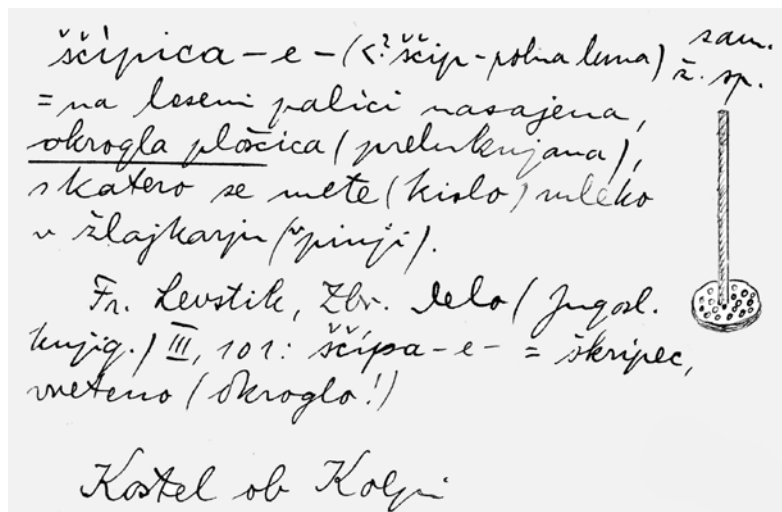 ščipica - e - (<? ščip - polna luna) sam. ž. sp.
= na leseni palici nasajena,
okrogla ploščica (preluknjana),
s katero se mete (kislo) mleko
v žlajkarju (pinji).
Fr. Levstik, Zbr. delo (Jugosl.
knjig.) III, 101: ščipa - e - = škripec,
vreteno (okroglo!)
Kostel ob Kolpi